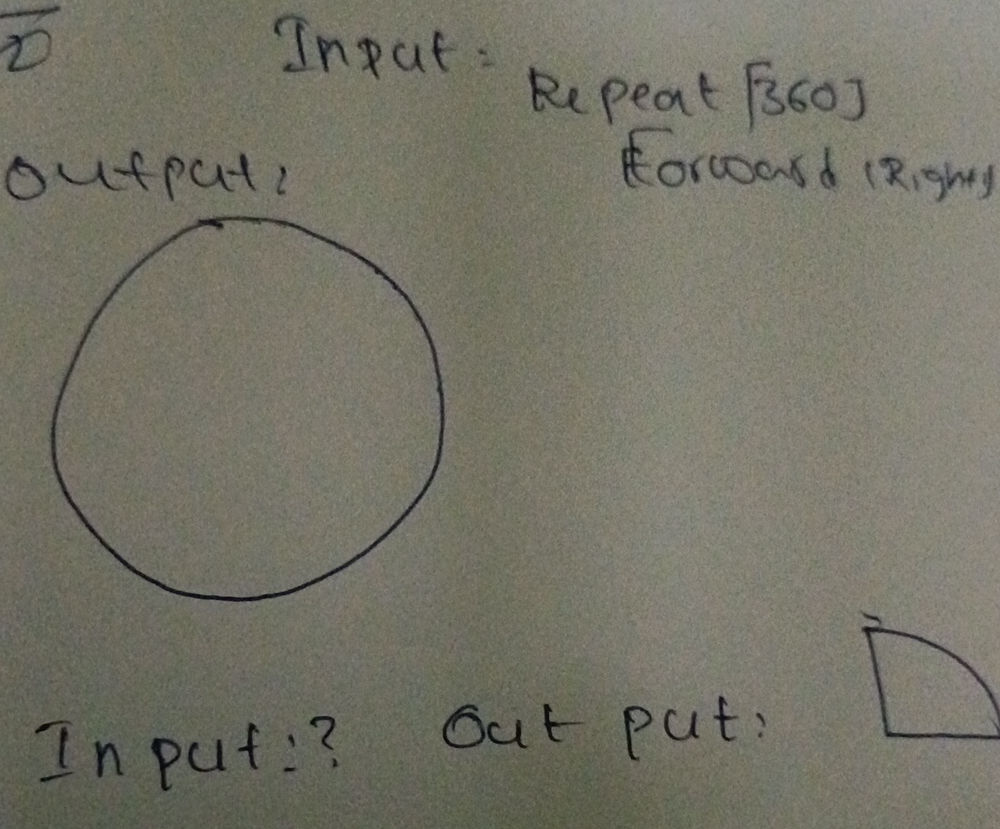 Input:
Repeat [360]
Forward (Right)
Output:
Input:? Output: